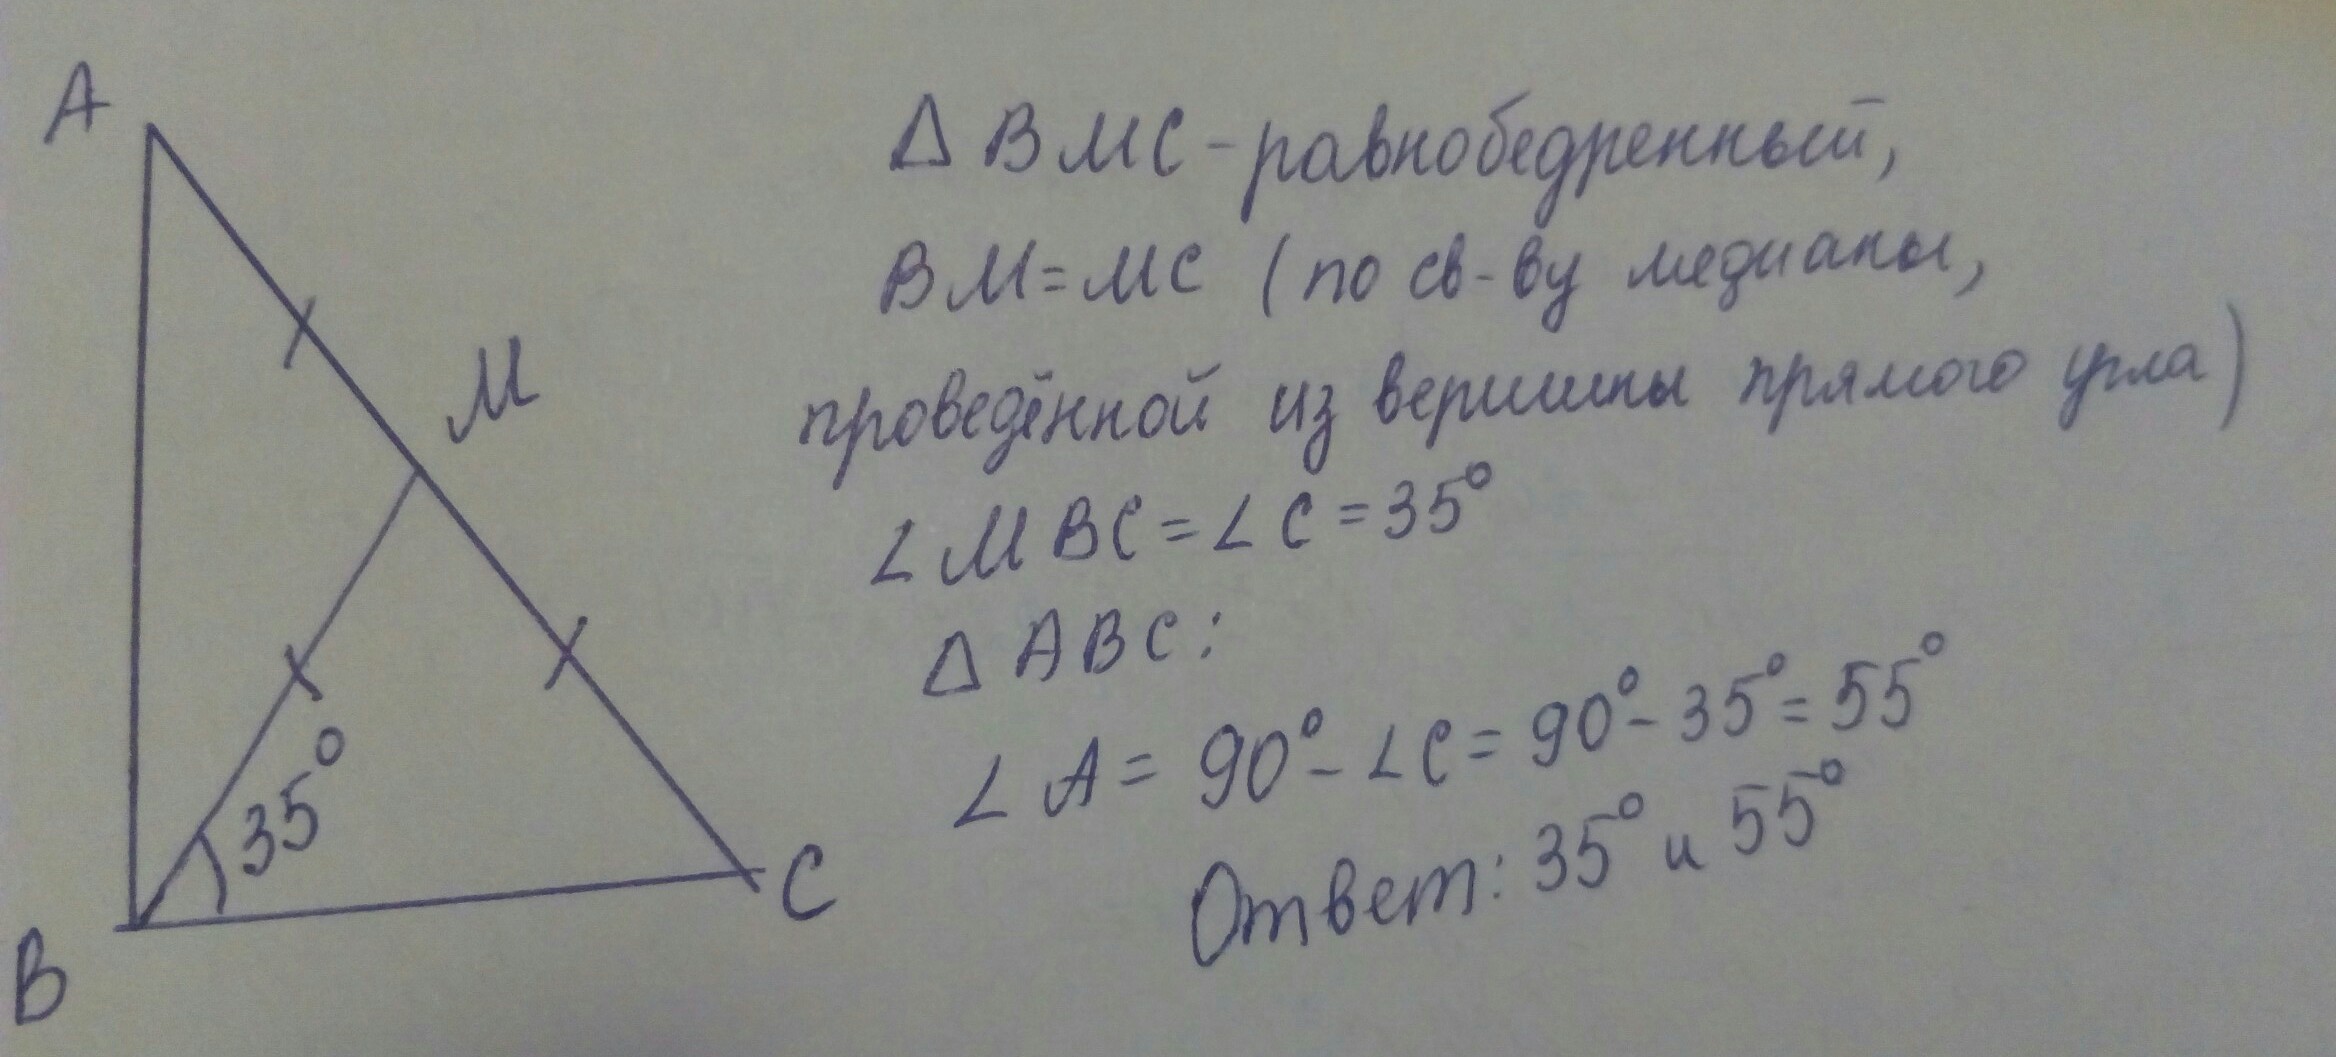 A
M
35°
B
C
Δ BMC - равнобедренный,
BM = MC (по св-ву медианы,
проведённой из вершины прямого угла)
∠ MBC = ∠ C = 35°
Δ ABC:
∠ A = 90° - ∠ C = 90° - 35° = 55°
Ответ: 35° и 55°